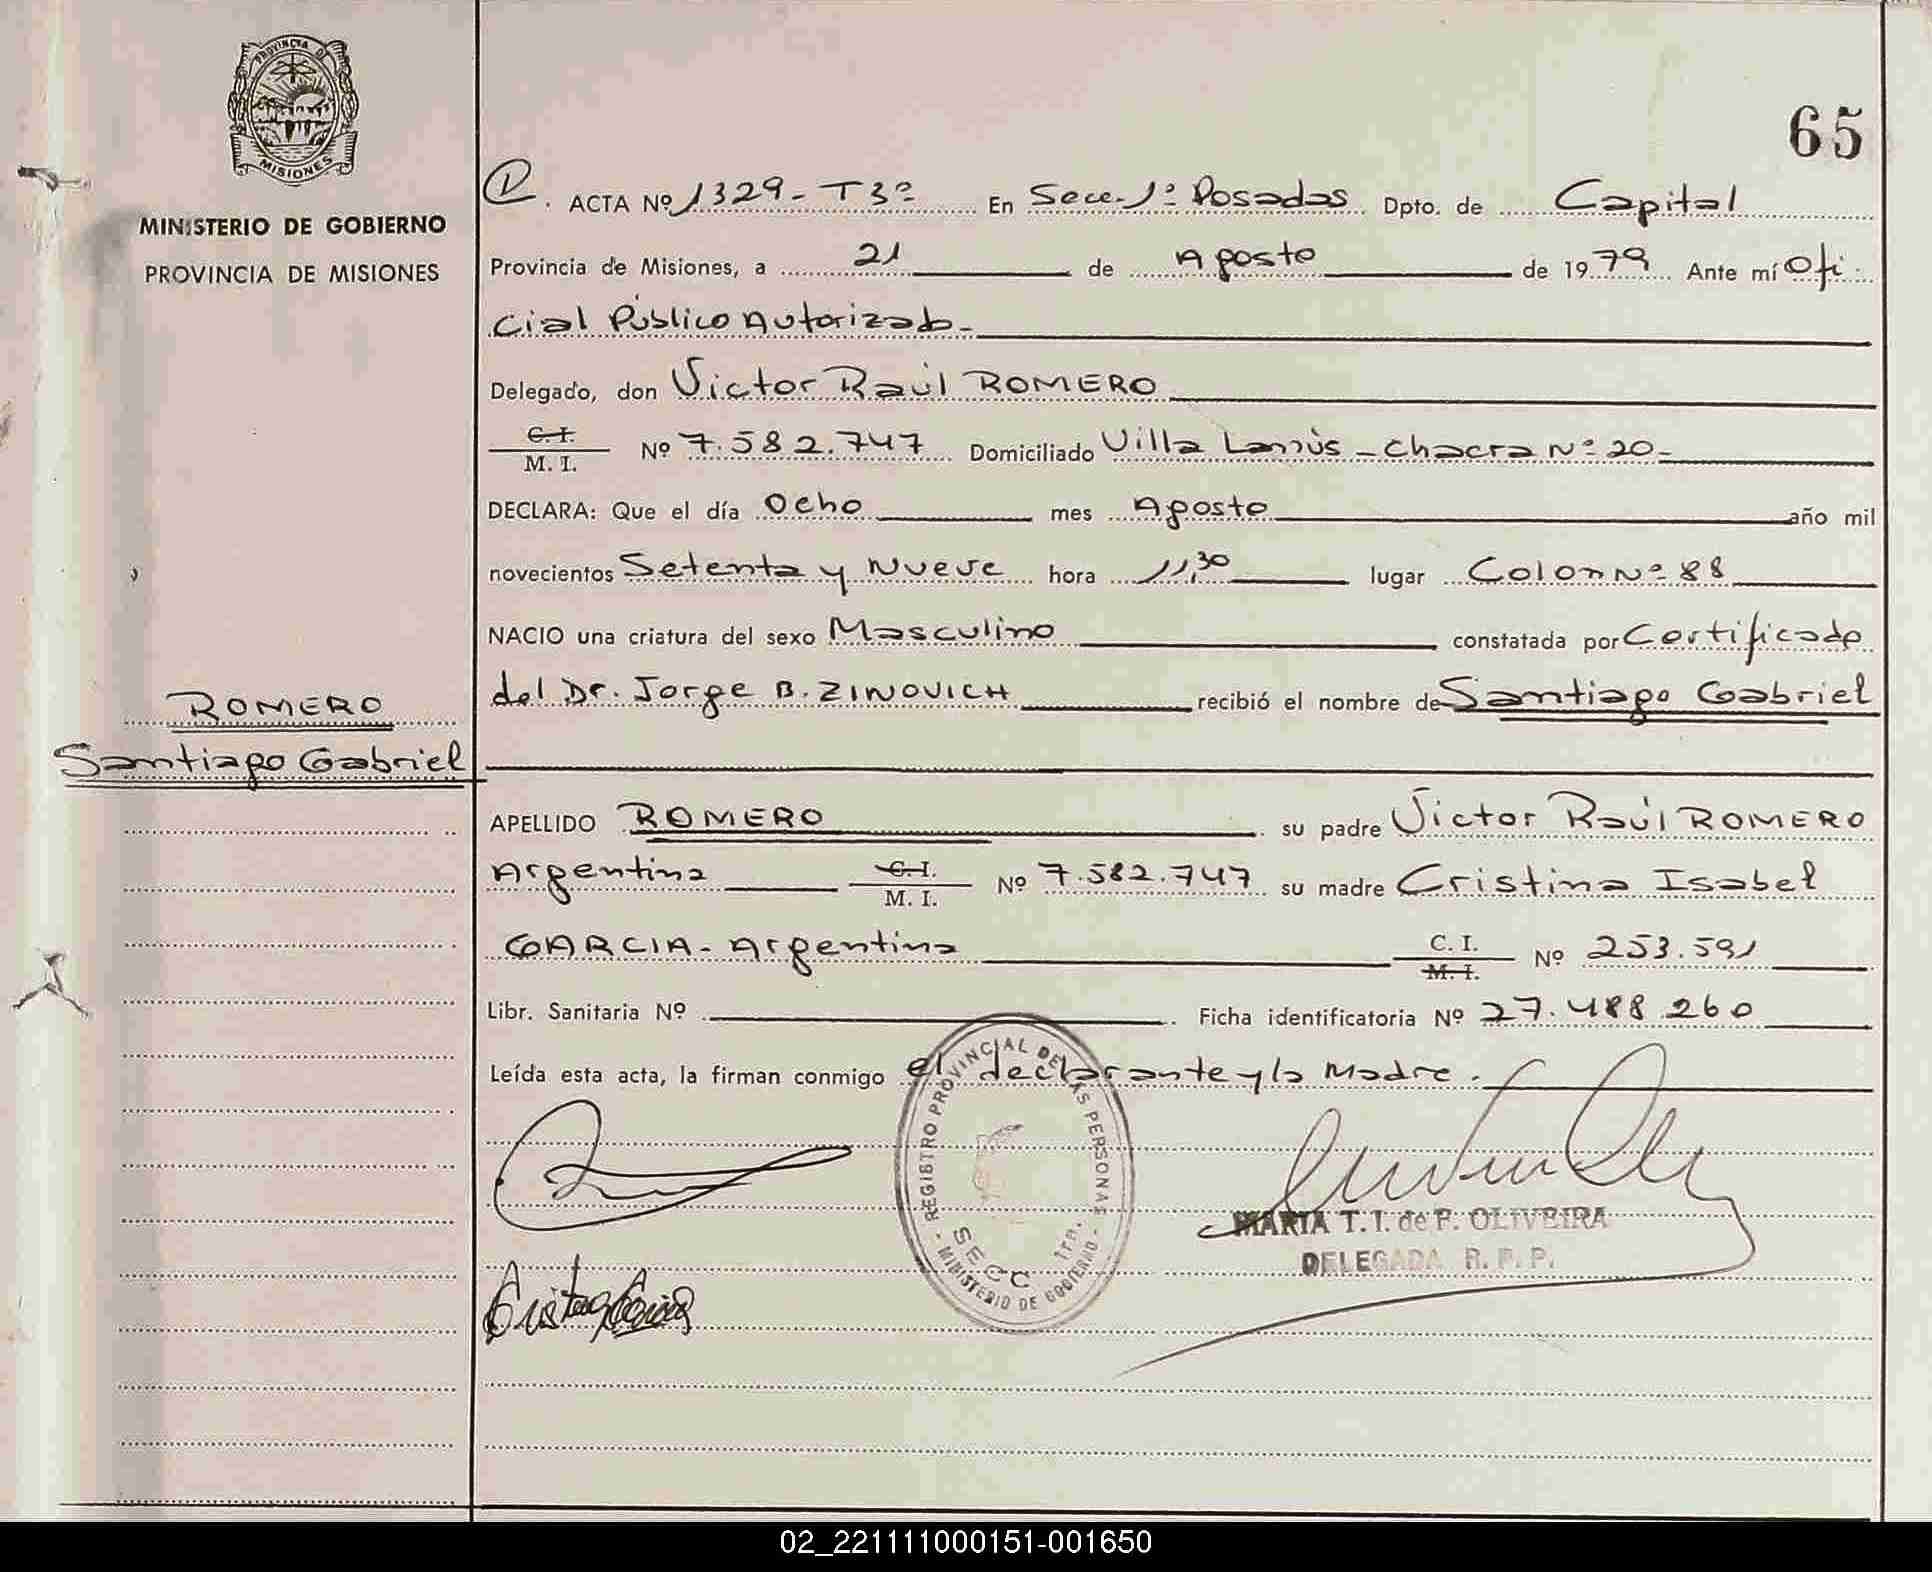 PROVINCIA DE
MISIONES
MINISTERIO DE GOBIERNO
PROVINCIA DE MISIONES
65
ACTA Nº 1329-T3º En Secc. 1º Posadas Dpto. de Capital
Provincia de Misiones, a 21 de Agosto de 1979 Ante mí Ofi
cial Público Autorizado-
Delegado, don Victor Raúl ROMERO
C. I. / M. I. Nº 7.582.747 Domiciliado Villa Lanús - Chacra Nº 20-
DECLARA: Que el día Ocho mes Agosto año mil
novecientos Setenta y Nueve hora 11,30 lugar Colon Nº 88
NACIO una criatura del sexo Masculino constatada por Certificado
del Dr. Jorge B. ZINOVICH recibió el nombre de Santiago Gabriel
ROMERO
Santiago Gabriel
APELLIDO ROMERO su padre Victor Raúl ROMERO
Argentina C. I. / M. I. Nº 7.582.747 su madre Cristina Isabel
GARCIA - Argentina C. I. / M. I. Nº 253.591
Libr. Sanitaria Nº Ficha identificatoria Nº 27.488.260
Leída esta acta, la firman conmigo el declarante y la Madre.
REGISTRO PROVINCIAL DE LAS PERSONAS
SECC 1ra.
- MINISTERIO DE GOBIERNO -
MARIA T. I. de F. OLIVEIRA
DELEGADA R. P. P.
02_221111000151-001650